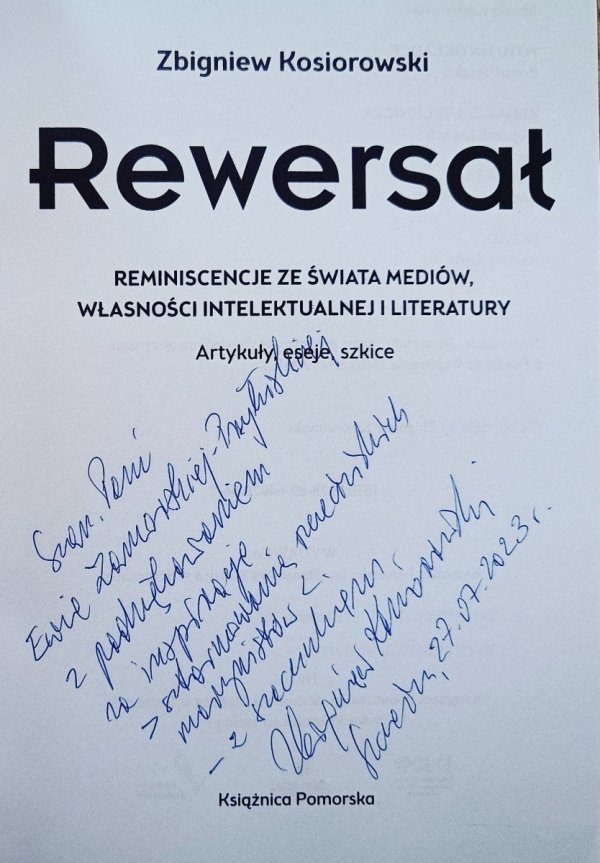 Zbigniew Kosiorowski
Rewersał
REMINISCENCJE ZE ŚWIATA MEDIÓW,
WŁASNOŚCI INTELEKTUALNEJ I LITERATURY
Artykuły, eseje, szkice
Szan. Pani
Ewie Zamorskiej-Przyłuskiej
z podziękowaniem
za inspirację
maszynistów
– z szacunkiem,
Zbigniew Kosiorowski
Szczecin, 27.07.2023 r.
Książnica Pomorska